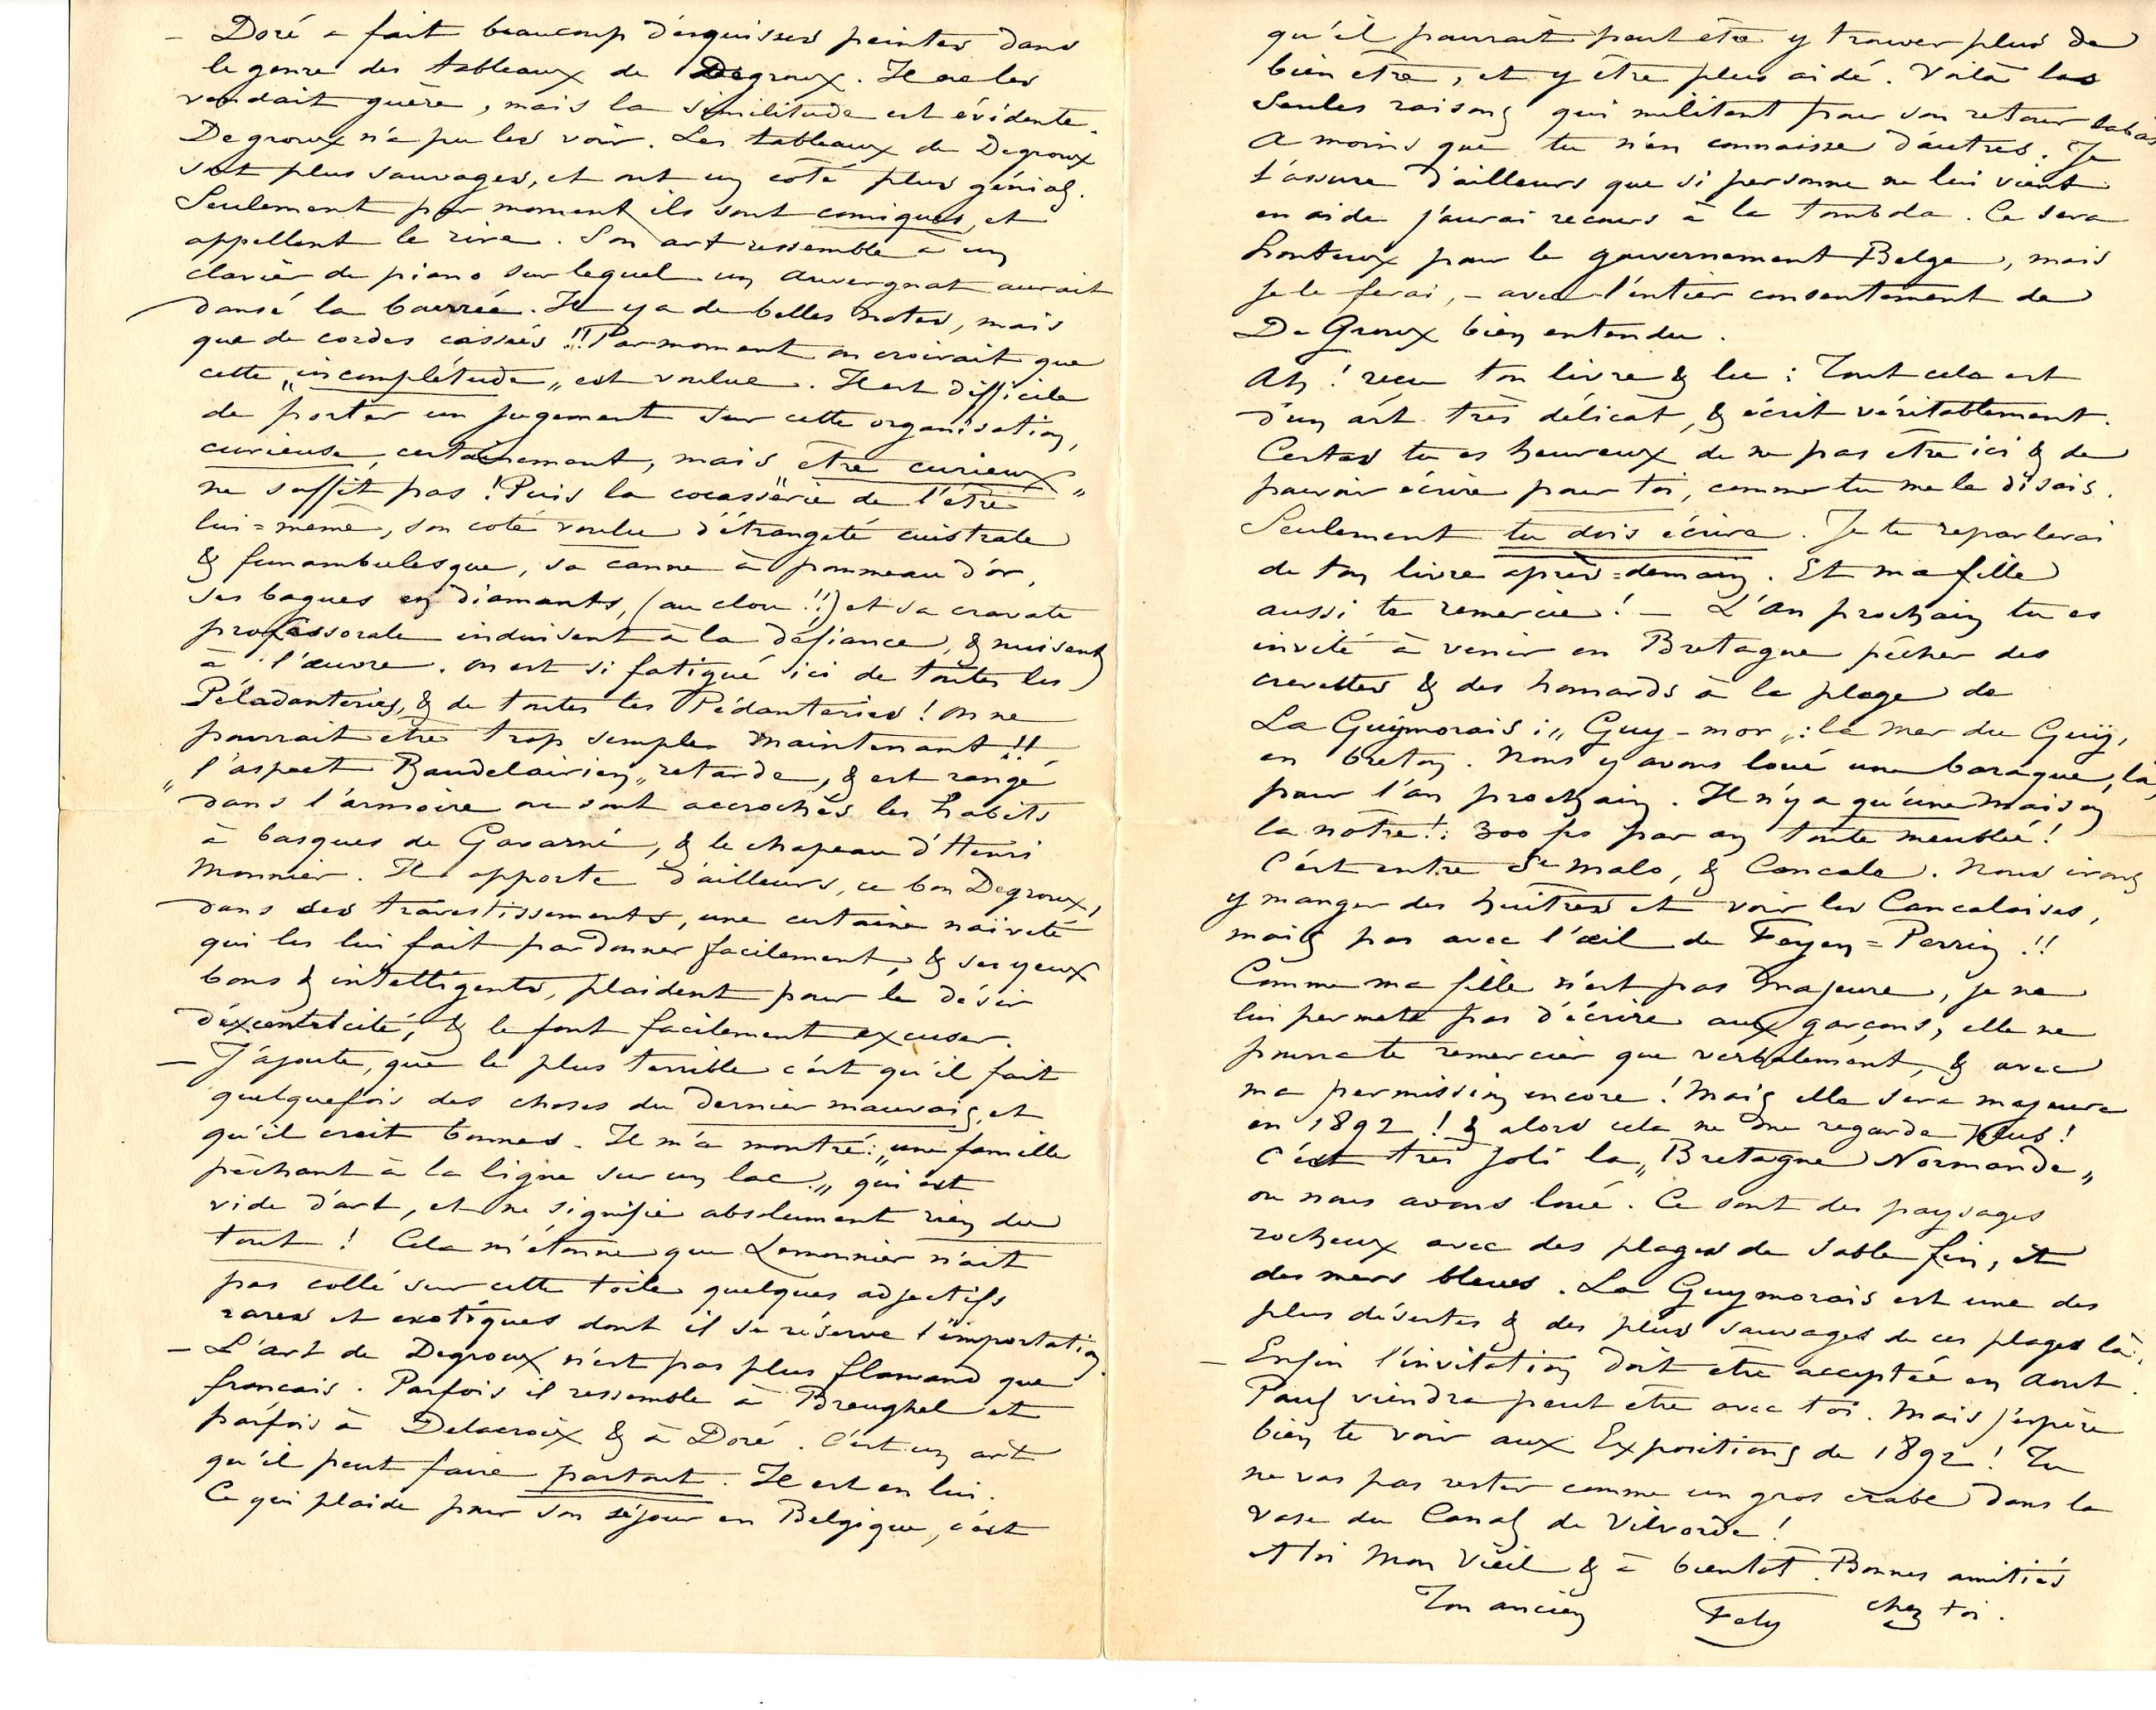 — Doré a fait beaucoup d'esquisses peintes dans
le genre des tableaux de Degroux. Il ne les
vendait guère, mais la similitude est évidente.
Degroux n'a pu les voir. Les tableaux de Degroux
sont plus sauvages, et ont un côté plus génial.
Seulement par moment ils sont comiques, et
appellent le rire. Son art ressemble à un
clavier de piano sur lequel un Auvergnat aurait
dansé la bourrée. Il y a de belles notes, mais
que de cordes cassées !! Par moment on croirait que
cette „incomplétude„ est voulue. Il est difficile
de porter un jugement sur cette organisation,
curieuse, certainement, mais „être curieux„
ne suffit pas ! Puis la cocasserie de l'être
lui=même, son coté voulu d'étrangeté cuistrale
& funambulesque, sa canne à pommeau d'or,
ses bagues en diamants, (au clou !!) et sa cravate
professorale induisent à la défiance, & nuisent
à l'œuvre. On est si fatigué ici de toutes les
Péladanteries, & de toutes les Pédanteries ! On ne
pourrait être trop simple maintenant !!
„l'aspect Baudelairien„ retarde, & est rangé
dans l'armoire ou sont accrochés les habits
à basques de Gavarni, & le chapeau d'Henri
Monnier. Il apporte d'ailleurs, ce bon Degroux,
dans ses travestissements, une certaine naïveté
qui les lui fait pardonner facilement, & ses yeux
bons & intelligents, plaident pour le désir
d'excentricité, & le font facilement excuser.
— J'ajoute, que le plus terrible c'est qu'il fait
quelquefois des choses du dernier mauvais, et
qu'il croit bonnes. Il m'a montré : „une famille
pêchant à la ligne sur un lac„ qui est
vide d'art, et ne signifie absolument rien du
tout ! Cela m'étonne que Lemonnier n'ait
pas collé sur cette toile quelques adjectifs
rares et exotiques dont il se réserve l'importation.
— L'art de Degroux n'est pas plus flamand que
francais. Parfois il ressemble à Breughel et
parfois à Delacroix & à Doré. C'est un art
qu'il peut faire partout. Il est en lui.
Ce qui plaide pour son séjour en Belgique, c'est
qu'il pourrait peut être y trouver plus de
bien être, et y être plus aidé. Voilà les
seules raisons qui militent pour son retour labas
A moins que tu n'en connaisse d'autres. Je
t'assure d'ailleurs que si personne ne lui vient
en aide j'aurai recours à la tombola. Ce sera
honteux pour le gouvernement Belge, mais
je le ferai, – avec l'entier consentement de
De Groux bien entendu.
Ah ! recu ton livre & lu : Tout cela est
d'un art très délicat, & écrit véritablement.
Certes tu es heureux de ne pas être ici & de
pouvoir écrire pour toi, comme tu me le disais.
Seulement tu dois écrire. Je te reparlerai
de ton livre après=demain. Et ma fille
aussi te remercie ! – L'an prochain tu es
invité à venir en Bretagne pêcher des
crevettes & des homards à la plage de
La Guymorais : „Guy-mor„ : la mer du Guy,
en breton. Nous y avons loué une baraque, là,
pour l'an prochain. Il n'y a qu'une maison
la nôtre ! : 300 frs par an toute meublée !
C'est entre St Malo, & Cancale. Nous irons
y manger des huîtres et voir les Cancalaises,
mais pas avec l'œil de Feyen=Perrin !!
Comme ma fille n'est pas majeure, je ne
lui permets pas d'écrire aux garçons, elle ne
pourra te remercier que verbalement, & avec
ma permission encore ! Mais elle sera majeure
en 1892 ! & alors cela ne me regarde plus !
C'est très joli la „Bretagne Normande„
ou nous avons loué. Ce sont des paysages
rocheux avec des plages de sable fin, et
des mers bleues. La Guymorais est une des
plus désertes & des plus sauvages de ces plages là.
— Enfin l'invitation doit être acceptée en Aout.
Paul viendra peut etre avec toi. Mais j'espère
bien te voir aux Expositions de 1892 ! Tu
ne vas pas rester comme un gros crabe dans la
vase du Canal de Vilvorde !
A toi Mon Vieil & à bientôt. Bonnes amitiés
chez toi.
Ton ancien Fely